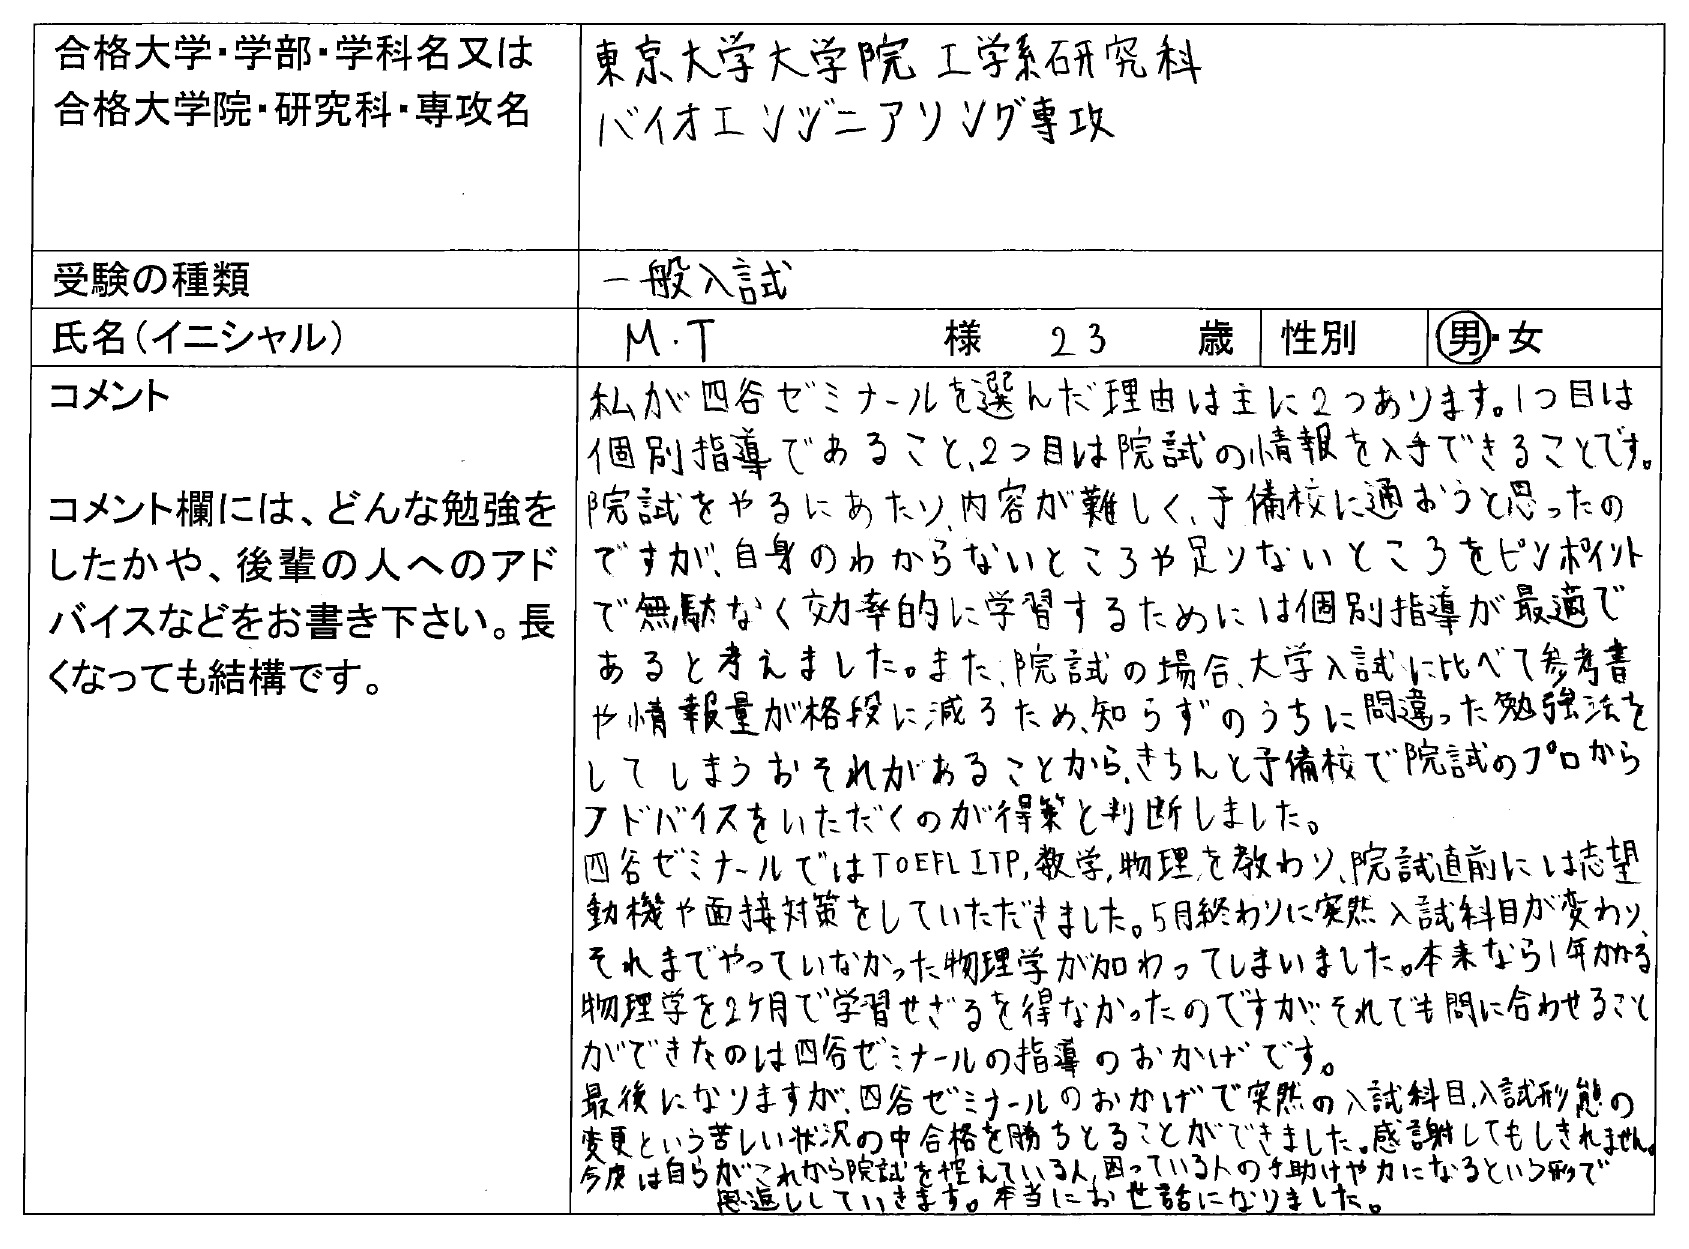 合格大学・学部・学科名又は
合格大学院・研究科・専攻名
東京大学大学院 工学系研究科
バイオエンジニアリング専攻
受験の種類
一般入試
氏名(イニシャル)
M.T 様 23 歳 性別 男・女
コメント
コメント欄には、どんな勉強を
したかや、後輩の人へのアド
バイスなどをお書き下さい。長
くなっても結構です。
私が四谷ゼミナールを選んだ理由は主に2つあります。1つ目は
個別指導であること、2つ目は院試の情報を入手できることです。
院試をやるにあたり、内容が難しく、予備校に通おうと思ったの
ですが、自身のわからないところや足りないところをピンポイント
で無駄なく効率的に学習するためには個別指導が最適で
あると考えました。また、院試の場合、大学入試に比べて参考書
や情報量が格段に減るため、知らずのうちに間違った勉強法を
してしまうおそれがあることから、きちんと予備校で院試のプロから
アドバイスをいただくのが得策と判断しました。
四谷ゼミナールではTOEFL ITP,数学,物理を教わり、院試直前には志望
動機や面接対策をしていただきました。5月終わりに突然入試科目が変わり、
それまでやっていなかった物理学が加わってしまいました。本来なら1年かかる
物理学を2ケ月で学習せざるを得なかったのですが、それでも間に合わせること
ができたのは四谷ゼミナールの指導のおかげです。
最後になりますが、四谷ゼミナールのおかげで突然の入試科目、入試形態の
変更という苦しい状況の中合格を勝ちとることができました。感謝してもしきれません。
今度は自らがこれから院試を控えている人、困っている人の手助けや力になるという形で
恩返ししていきます。本当にお世話になりました。